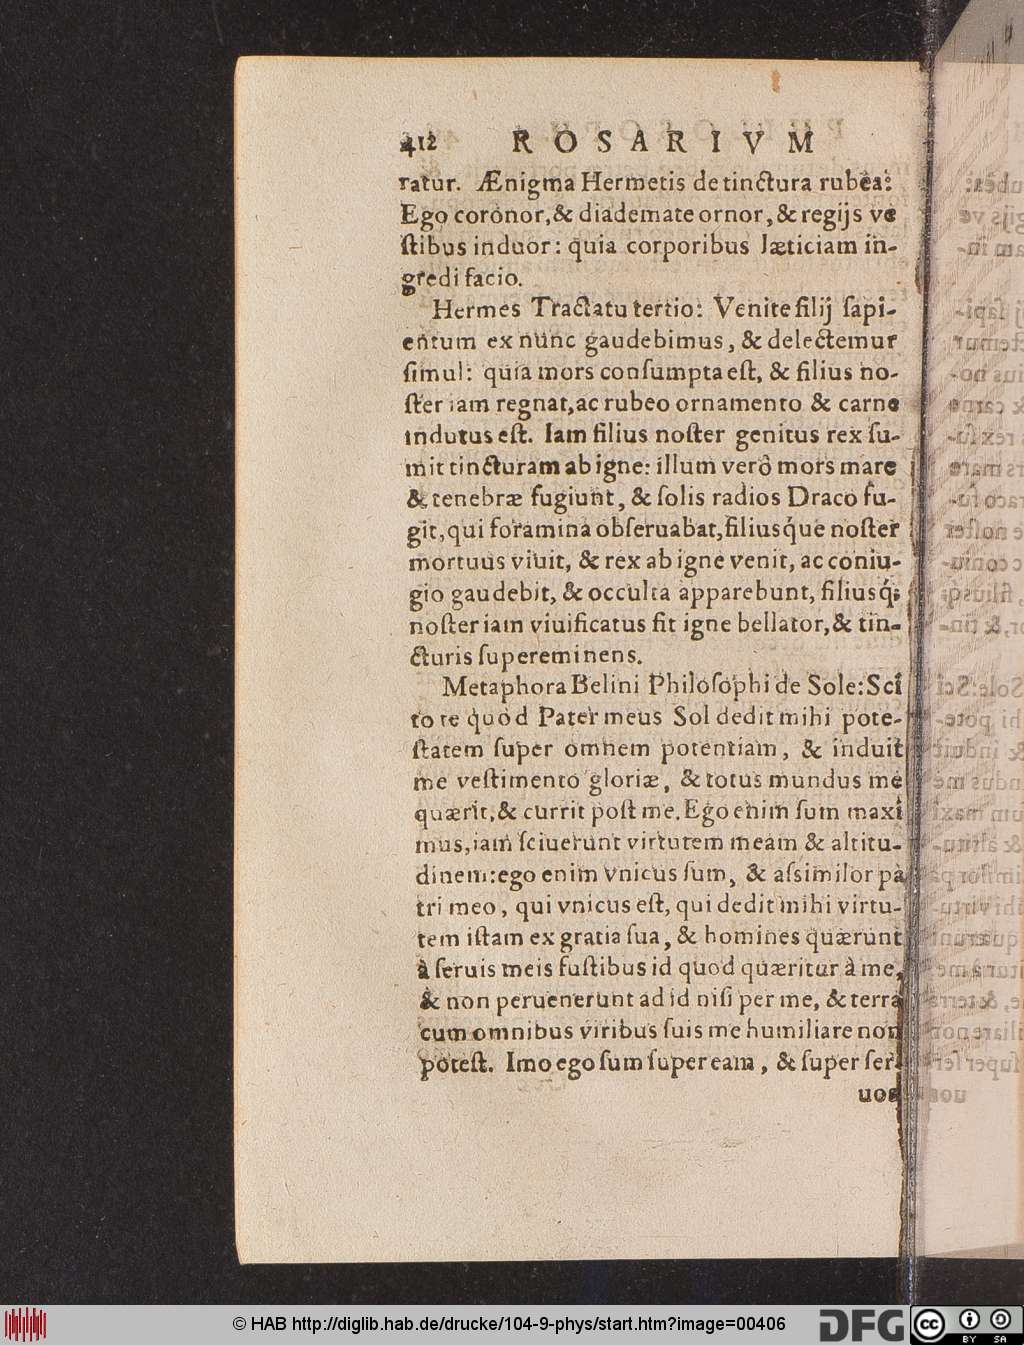 412 ROSARIVM
ratur. Ænigma Hermetis de tinctura rubêa:
Ego coronor, & diademate ornor, & regijs ve
ſtibus induor: quia corporibus læticiam in-
gredi facio.
Hermes Tractatu tertio: Venite filij ſapi-
entum ex nunc gaudebimus, & delectemur
ſimul: quia mors conſumpta eſt, & filius no-
ſter iam regnat, ac rubeo ornamento & carne
indutus eſt. Iam filius noſter genitus rex ſu-
mit tincturam ab igne: illum verò mors mare
& tenebræ fugiunt, & ſolis radios Draco fu-
git, qui foramina obſeruabat, filiusq́ue noſter
mortuus viuit, & rex ab igne venit, ac coniu-
gio gaudebit, & occulta apparebunt, filiusq́;
noſter iam viuificatus fit igne bellator, & tin-
cturis ſupereminens.
Metaphora Belini Philoſophi de Sole: Sci
to te quòd Pater meus Sol dedit mihi pote-
ſtatem ſuper omnem potentiam, & induit
me veſtimento gloriæ, & totus mundus me
quærit, & currit poſt me. Ego enim ſum maxi
mus, iam ſciuerunt virtutem meam & altitu-
dinem: ego enim vnicus ſum, & aſsimilor pa
tri meo, qui vnicus eſt, qui dedit mihi virtu-
tem iſtam ex gratia ſua, & homines quærunt
à ſeruis meis fuſtibus id quod quæritur à me,
& non peruenerunt ad id niſi per me, & terra
cum omnibus viribus ſuis me humiliare non
poteſt. Imo ego ſum ſuper eam, & ſuper ſer
uos
© HAB http://diglib.hab.de/drucke/104-9-phys/start.htm?image=00406
DFG
cc BY SA